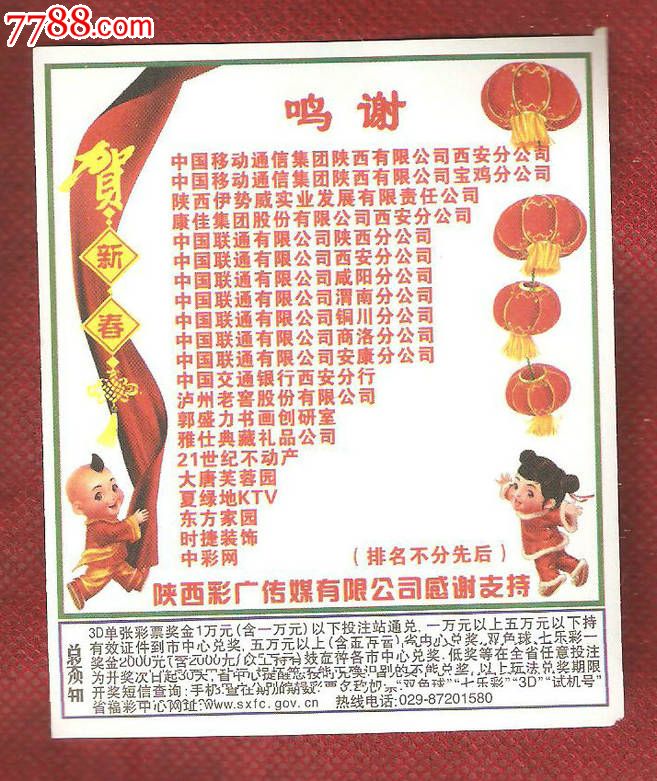 7788.com
鸣谢
贺新春
中国移动通信集团陕西有限公司西安分公司
中国移动通信集团陕西有限公司宝鸡分公司
陕西伊势威实业发展有限责任公司
康佳集团股份有限公司西安分公司
中国联通有限公司陕西分公司
中国联通有限公司西安分公司
中国联通有限公司咸阳分公司
中国联通有限公司渭南分公司
中国联通有限公司铜川分公司
中国联通有限公司商洛分公司
中国联通有限公司安康分公司
中国交通银行西安分行
泸州老窖股份有限公司
郭盛力书画创研室
雅仕典藏礼品公司
21世纪不动产
大唐芙蓉园
夏绿地KTV
东方家园
时捷装饰
中彩网 (排名不分先后)
陕西彩广传媒有限公司感谢支持
兑奖须知
3D单张彩票奖金1万元(含一万元)以下投注站通兑，一万元以上五万元以下持
有效证件到市中心兑奖，五万元以上(含五万元)省中心兑奖。双色球、七乐彩一
奖金2000元(含2000元)以上持有效证件各市中心兑奖，低奖等在全省任意投注
为开奖次日起30天，省中心提醒您 兑奖，以上玩法兑奖期限
开奖短信查询：手机 "双色球""七乐彩""3D""试机号"
省福彩中心网址：www.sxfc.gov.cn 热线电话：029-87201580